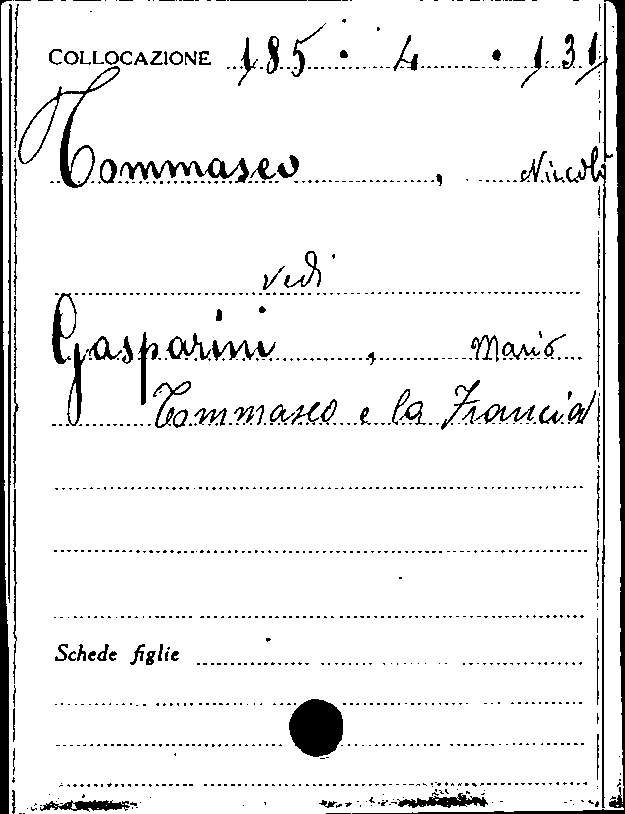 COLLOCAZIONE 185 · 4 · 131
Tommaseo, Niccolò
vedi
Gasparini, Mario
Tommaseo e la Francia
Schede figlie